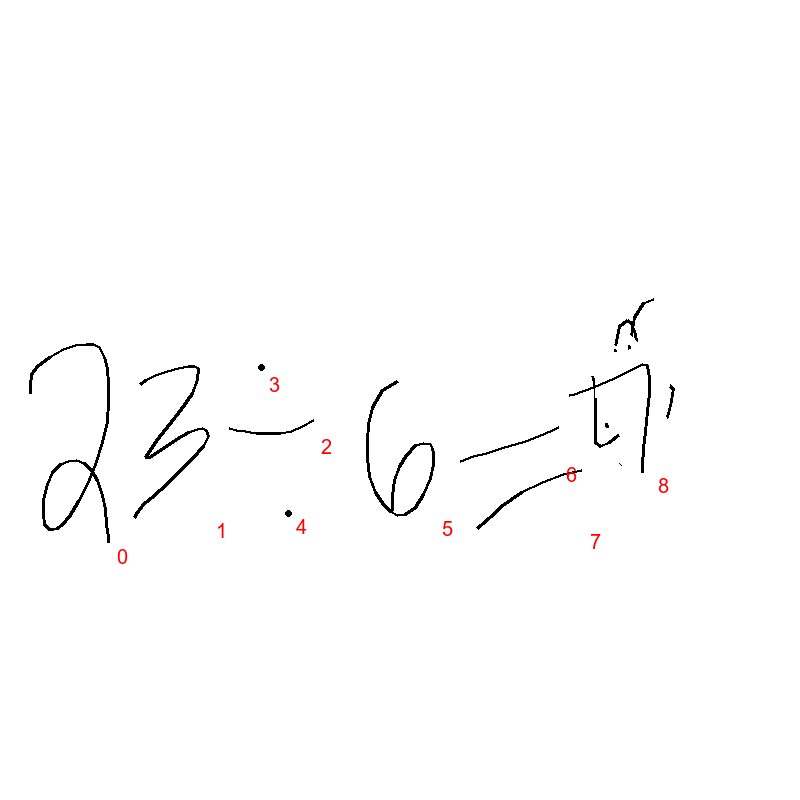 23 ÷ 6 =
0 1 2 3 4 5 6 7 8